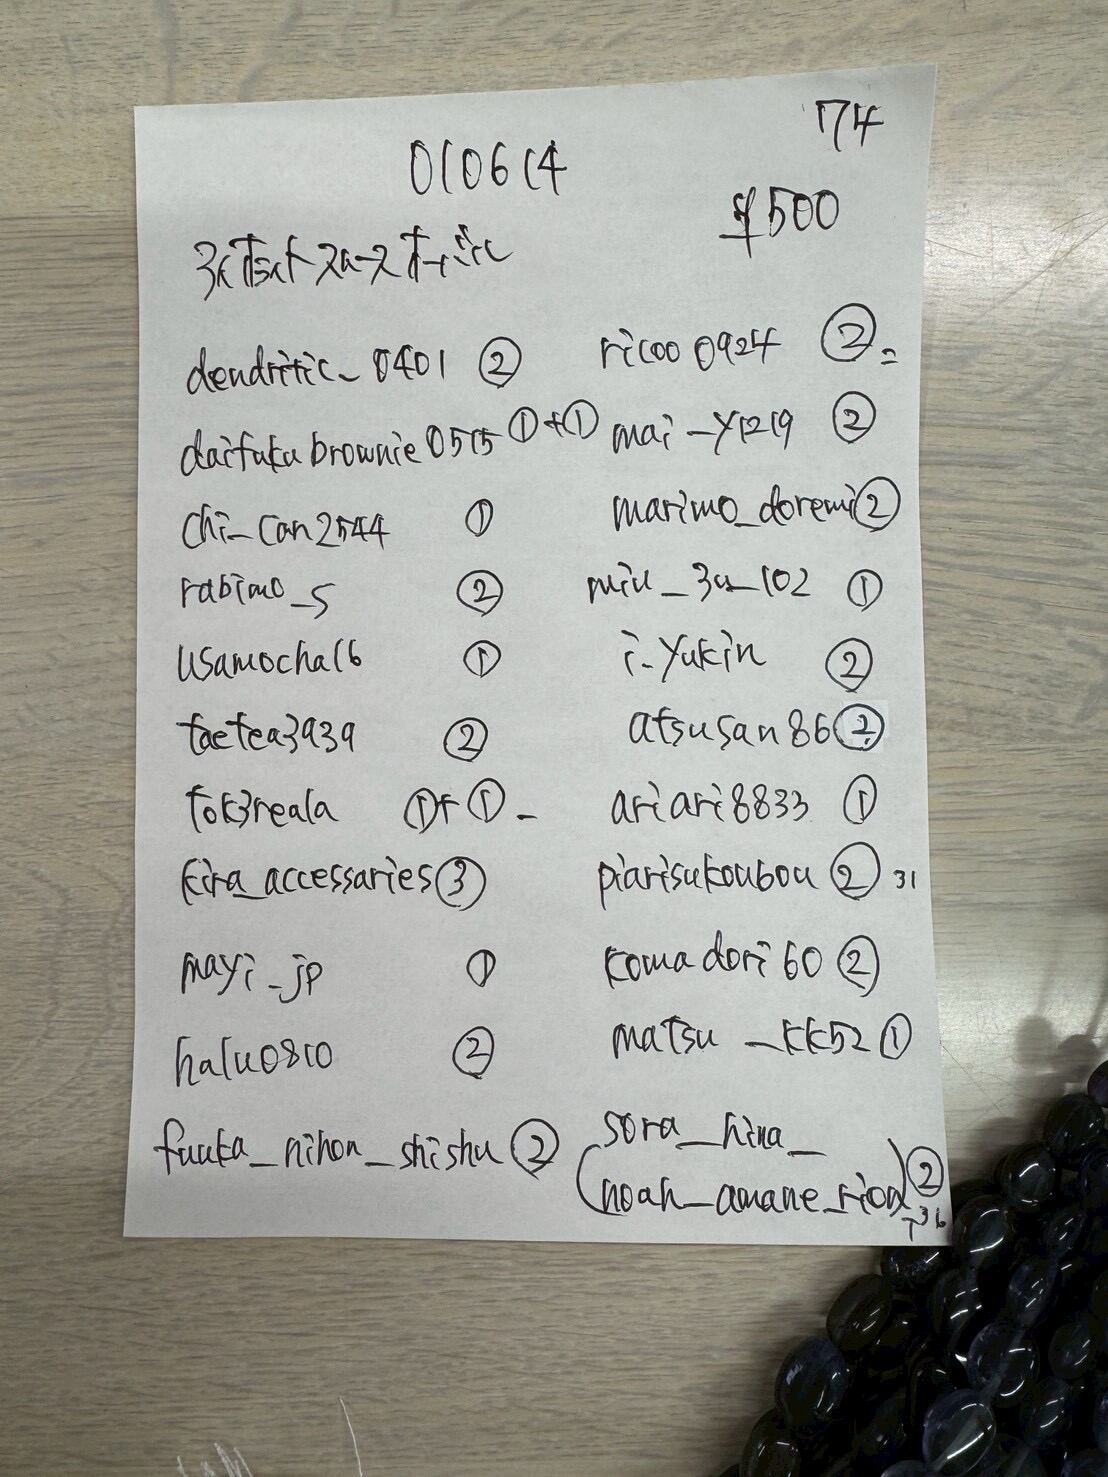 74
010614
¥500
dendritic_0401 ②
daifukubrownie0515 ①+①
chi_can2544 ①
rabimo_s ②
usamocha16 ①
taetea3939 ②
tok3reala ①+①-
kira_accessaries ③
mayi_jp ①
halu0810 ②
fuuka_nihon_shishu ②
ricoo0924 ②=
mai-y1219 ②
marimo_doremi ②
miu_3u_102 ①
i-yukin ②
atsusan86 ②
ariari8833 ①
piarisukoubou ② 31
komadori60 ②
matsu_kk52 ①
(sora_hina_
noah_amane_rion) ②